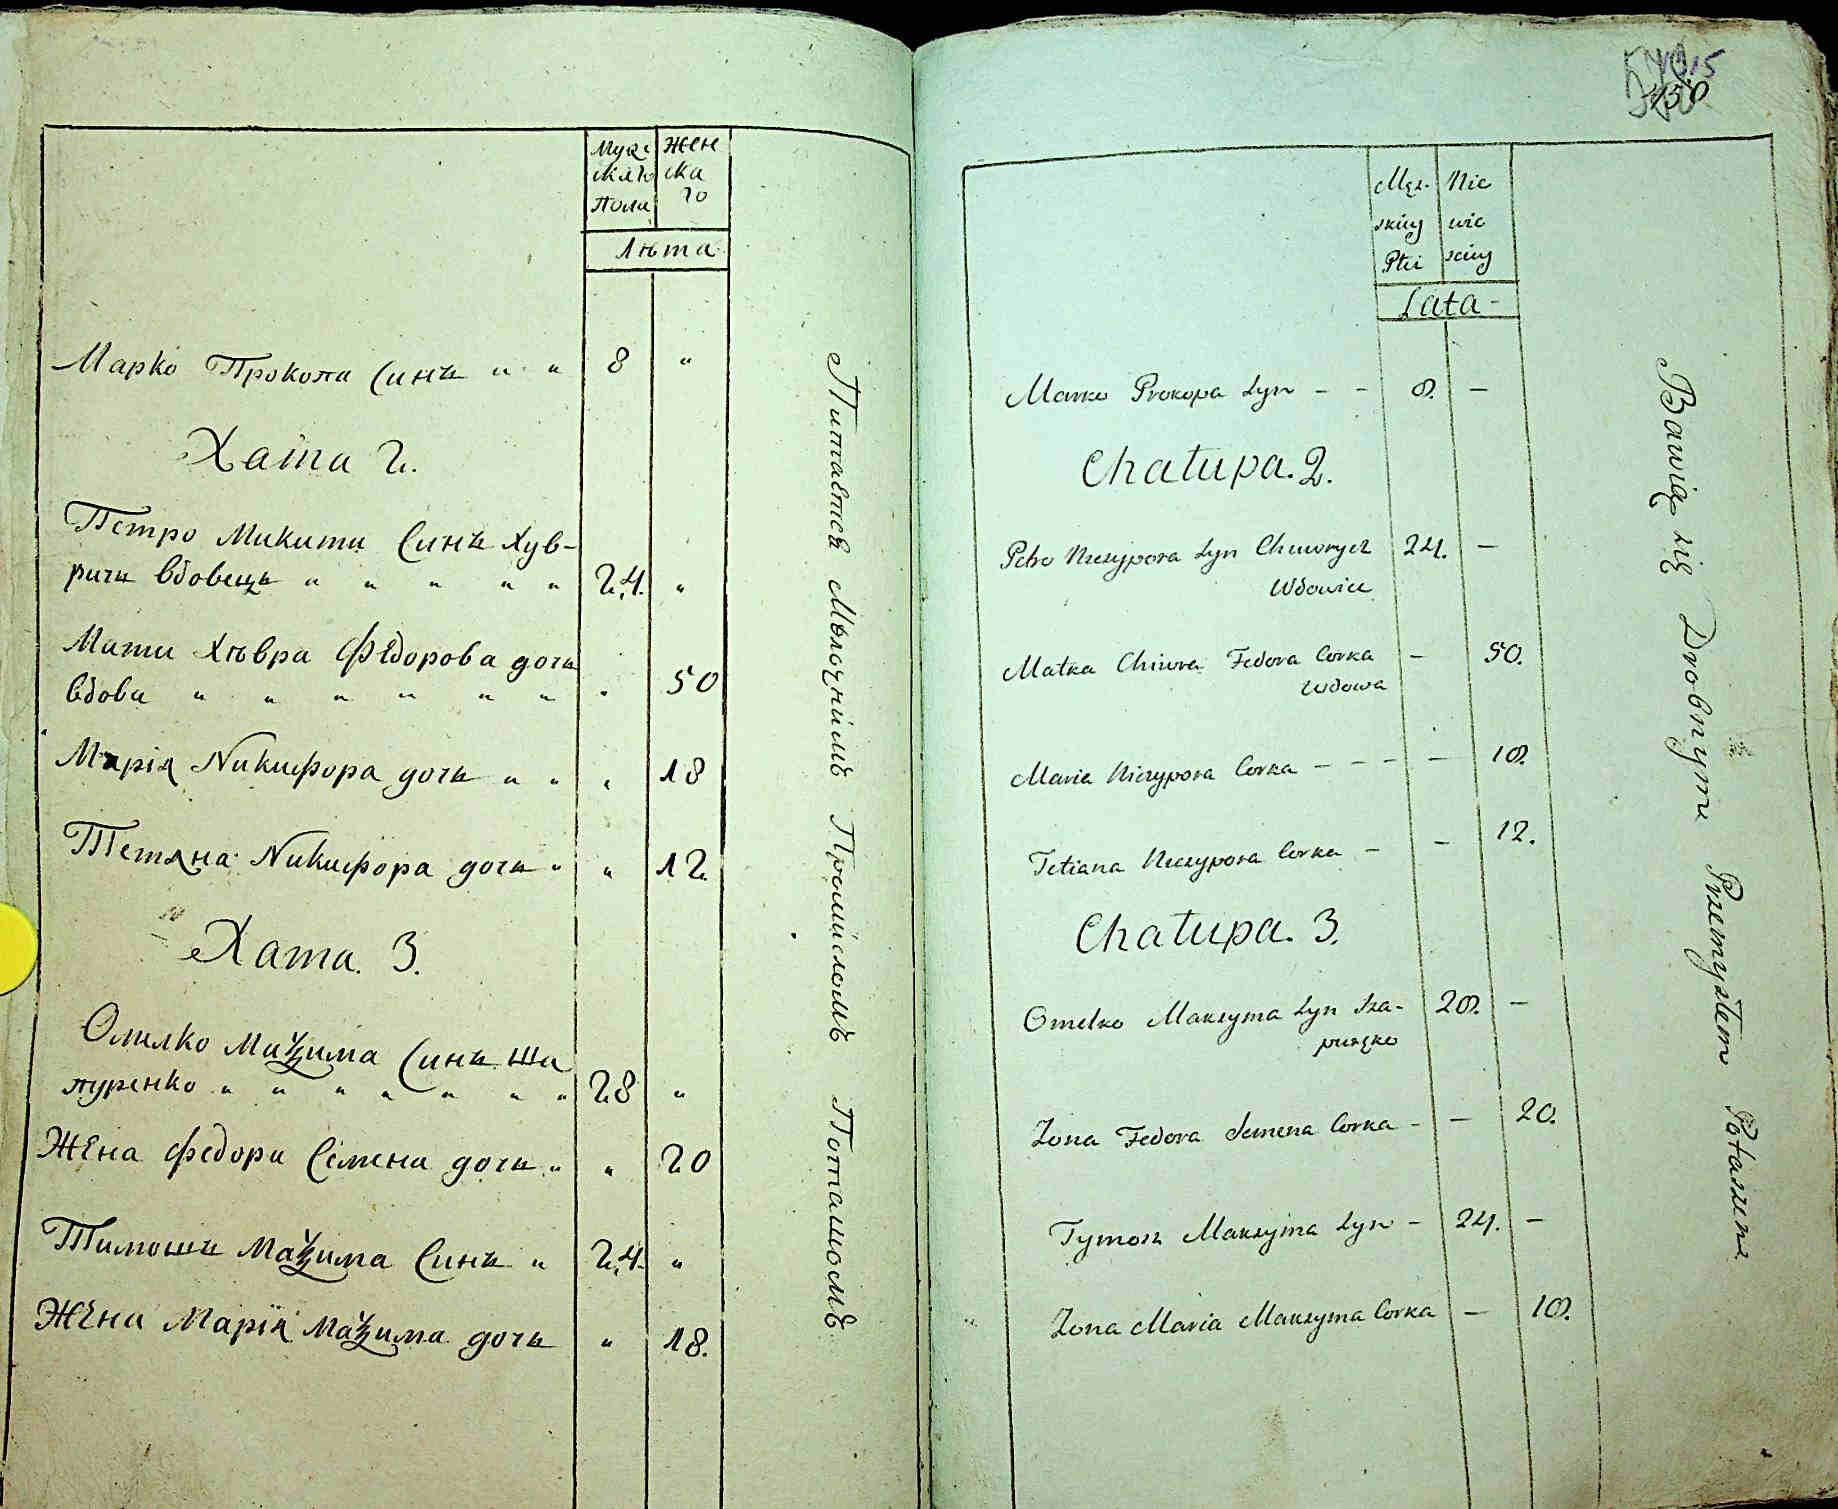 Муже
скаго
Пола
Жен
ска
го
Лѣта
Марко Прокопа Синъ " " 8 "
Хата 2.
Петро Микити Синъ Хув-
ричъ вдовецъ " " " " " 24. "
Мати Хѣвра Федорова дочь
вдова " " " " " " " 50
Марія Никифора дочь " " " 18
Тетяна Никифора дочь " " 12
Хата. 3.
Омелко Маѯима Синъ Ша
пуренко " " " " " " " 28 "
Жена Федора Семена дочь " " 20
Тимошъ Маѯима Синъ " 24. "
Жена Марія Маѯима дочь " 18.
Питается Мѣлочнимъ Промисломъ Поташомъ
15
150
Męz.
skiey
Płci
Nie
wie
sciey
Lata -
Marko Prokopa Syn - - 8. -
Chałupa. 2.
Petro Niczypora Syn Chuwrycz 24. -
Wdowiec
Matka Chiwra Fedora Corka - 50.
Wdowa
Maria Niczypora Corka - - - - 18.
Tetiana Niczypora Corka - - 12.
Chałupa. 3.
Omelko Maksyma Syn Sza- 28. -
puręko
Zona Fedora Semena Corka - - 20.
Tymosz Maksyma Syn - 24. -
Zona Maria Maksyma Corka - 18.
Bawią się Drobnym Przemysłem Potaszem